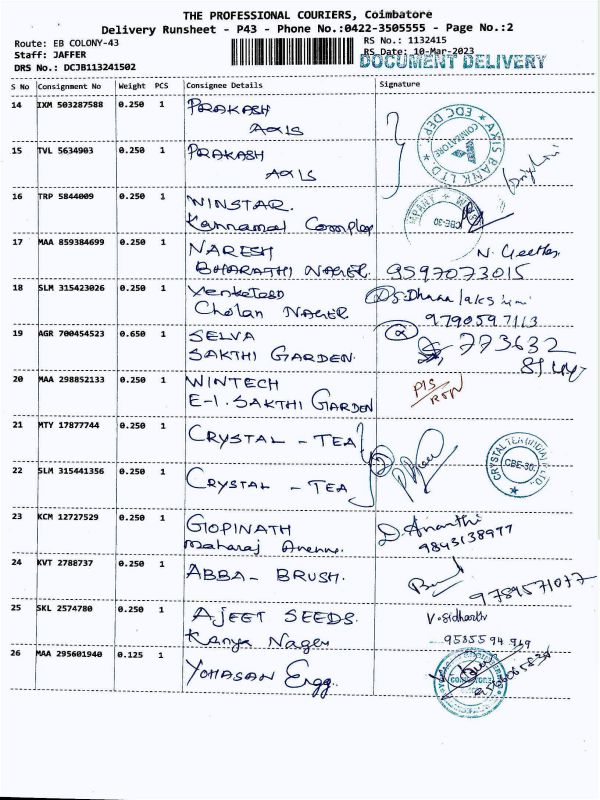 THE PROFESSIONAL COURIERS, Coimbatore
Delivery Runsheet - P43 - Phone No.:0422-3505555 - Page No.:2
Route: EB COLONY-43
Staff: JAFFER
DRS No.: DCJB113241502
RS No.: 1132415
RS Date: 10-Mar-2023
DOCUMENT DELIVERY
S No Consignment No Weight PCS Consignee Details Signature
14 IXM 503287588 0.250 1 PRAKASH
AXIS
AXIS BANK LTD. EDC DEPT. COIMBATORE
15 TVL 5634903 0.250 1 PRAKASH
AXIS
16 TRP 5844009 0.250 1 WINSTAR.
Kannamal Complex
CBE-30
17 MAA 859384699 0.250 1 NARESH N. Geetha
BHARATHI NAGER. 9597073015
18 SLM 315423026 0.250 1
Cholan NAGER 9790597113
19 AGR 700454523 0.650 1 SELVA 773632
SAKTHI GARDEN.
20 MAA 298852133 0.250 1 WINTECH
E-1. SAKTHI GARDEN
21 MTY 17877744 0.250 1 CRYSTAL - TEA
CRYSTAL TEA (INDIA) LTD. CBE-30.
22 SLM 315441356 0.250 1 CRYSTAL - TEA
23 KCM 12727529 0.250 1 GOPINATH D. Ananthi
Maharaj Avenue. 9843138977
24 KVT 2788737 0.250 1 ABBA - BRUSH.
25 SKL 2574780 0.250 1 AJEET SEEDS. V. Sidharth
Kanya Nager
26 MAA 295601940 0.125 1 YOHASAN Engg.
COIMBATORE